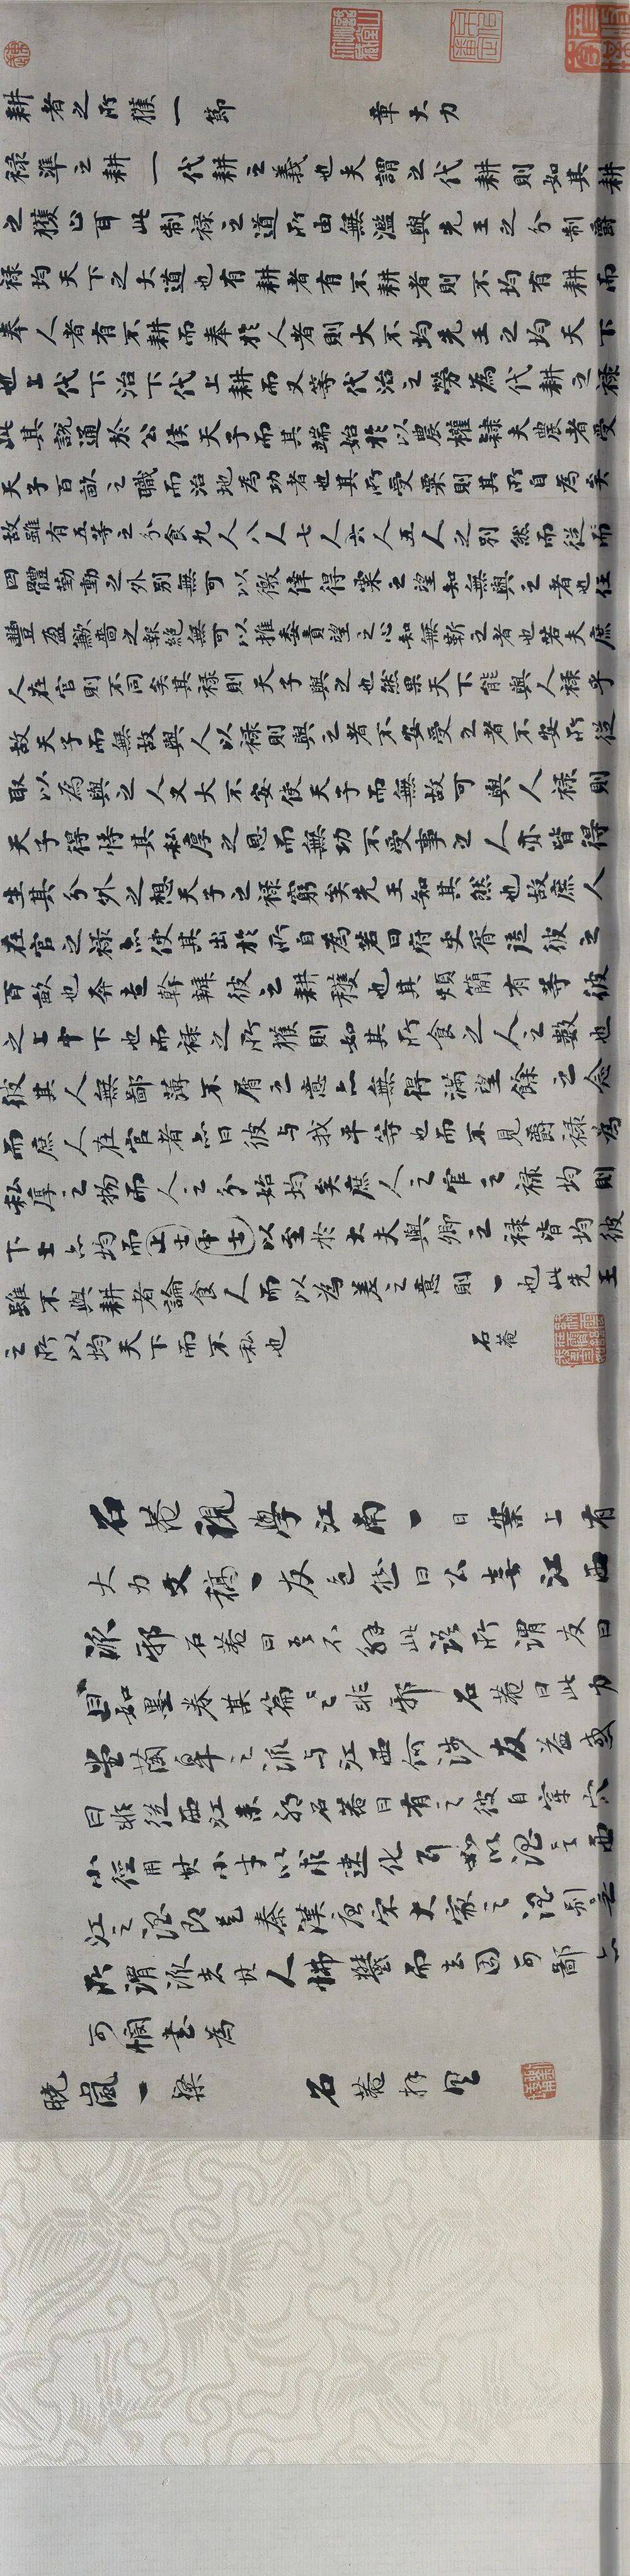 耕者之所獲一節 章大力
祿準之耕一代耕之義也夫謂之代耕則如其耕
之獲止耳此制祿之道所由無濫與先王之分制爵
祿均天下之大道也有耕者有不耕者則不均有耕而
奉人者有不耕而奉於人者則大不均先王之均天下
也上代下治下代上耕而又等代治之勞為代耕之祿
此其說通於公侯天子而其端始於以農權隸夫農者受
天子百畝之職而治地為功者也其所受粟則其所自為矣
故雖有五等之分食九人八人七人六人五人之別然而從而
四體勤動之外別無可以徼倖得粟之望知無與之者也任
豐盈歉嗇之報絕無可以推委責望之心知無靳之者也若夫庶
人在官則不同矣其祿則天子與之也然果天下能與人祿乎
故天子而無故與人以祿則與之者不安受之者不安所從
取以為與之人又大不安使天子而無故可與人祿則
天子得恃其私厚之恩而無功不受事之人亦皆得
生其分外之想天子之祿窮矣先王知其然也故庶人
在官之祿亦使其出於所自為若曰府史胥徒彼之
百畝也奔走幹辦彼之耕穫也其煩簡有等彼
之上中下也而祿之所獲則如其所食之人之數也
彼其人無鄙薄不屑之意亦無得滿望餘之念
而庶人在官者亦曰彼与我平等也而不見爵祿為
私厚之物而人之分始均矣庶人之官之祿均則
下士亦均而上士中士以至於大夫與卿之祿皆均彼
雖不與耕者論食人而以為差之意則一也此先王
之所以均天下而不私也 石菴
石菴視學江南一日案上有
大力文稿一友色然曰公喜江西
派邪石菴曰吾不解此語所謂友曰
且如墨卷某篇之非邪石菴曰此乃
當蘭皋之派与江西何涉友益惑
曰非從西江來邪石菴曰有之彼自穿穴
小徑用其小才以求速化耳
江之 即是秦漢唐宋大家之
所謂派者其人怫然而去因可鄙亦
可憫書為
曉嵐一粲 石菴拜具